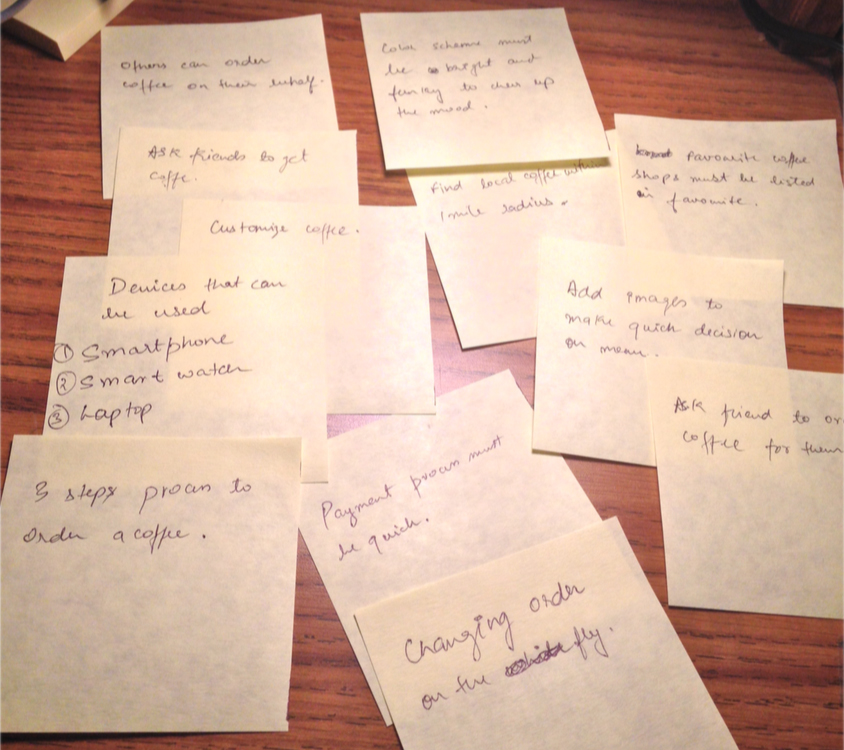 Others can order
coffee on their behalf.
Color scheme must
be bright and
funky to cheer up
the mood.
Ask friends to get
coffe.
Find local coffee within
1 mile radius.
Favourite coffee
shops must be listed
in favourite.
Customize coffee.
Devices that can
be used
① Smartphone
② Smart watch
③ Laptop
Add images to
make quick decision
on menu.
Ask friend to or
coffee for them
3 steps process to
order a coffee.
Payment process must
be quick.
Changing order
on the fly.